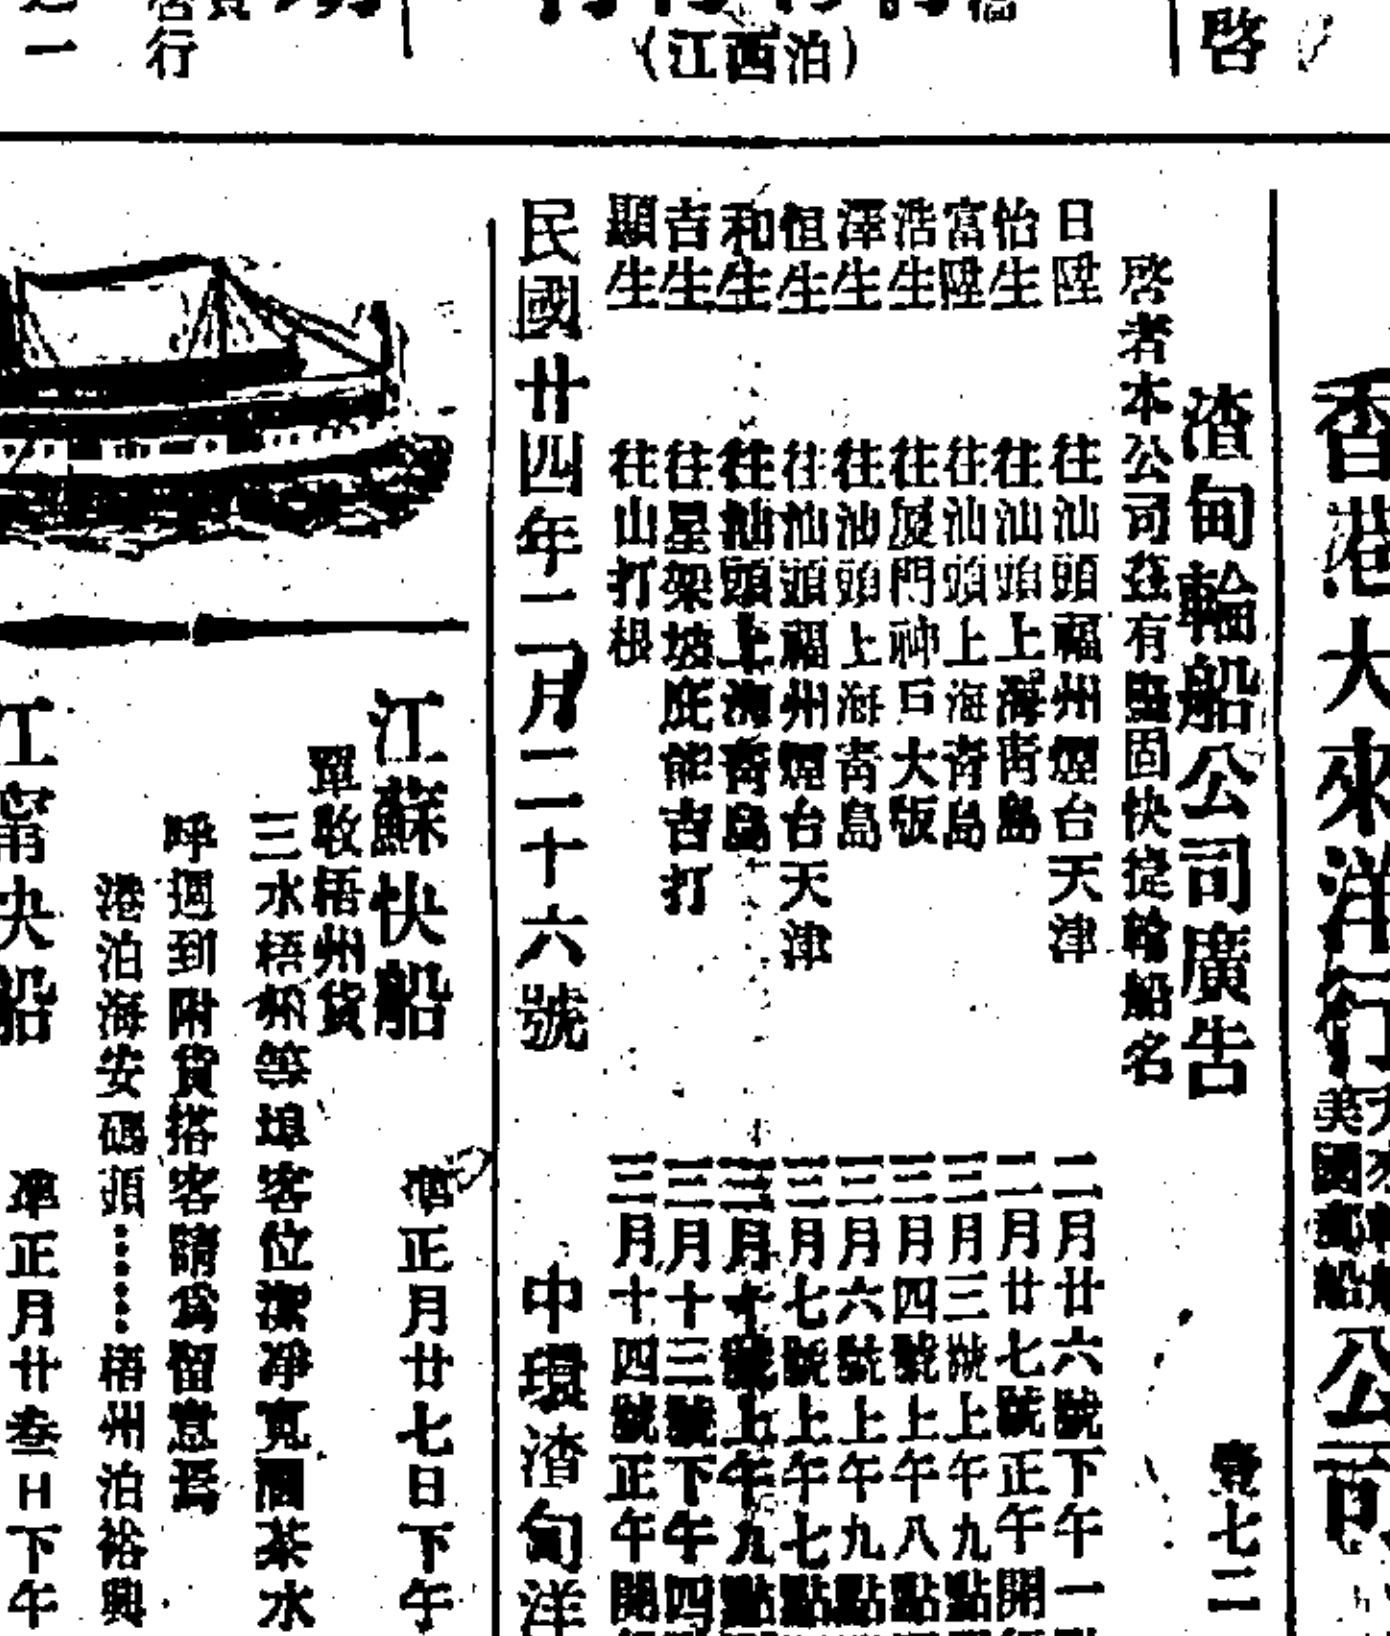 啓
(江西泊)
行
一
香港大來洋行
美國郵船
公司
渣甸輪船公司廣告
壹七二
啓者本公司茲有堅固快捷輪船名
日陞 往汕頭福州煙台天津 二月廿六號下午一
怡生 往汕頭上海靑島 二月廿七號正午開
富陞 往汕頭上海靑島 三月三號上午九點
浩生 往廈門神戶大版 三月四號上午八點
澤生 往汕頭上海靑島 三月六號上午九點
恒生 往汕頭福州煙台天津 三月七號上午七點
和生 往汕頭上海靑島 三月十號上午九點
吉生 往星架坡庇能吉打 三月十三號下午四
顯生 往山打根 三月十四號正午開
民國廿四年二月二十六號 中環渣甸洋
江蘇快船 準正月廿七日下午
單收梧州貨
三水梧州等埠客位潔净寬濶茶水
呼週到附貨搭客請爲留意焉
港泊海安碼頭……梧州泊裕興
江甯快船 準正月廿叁日下午